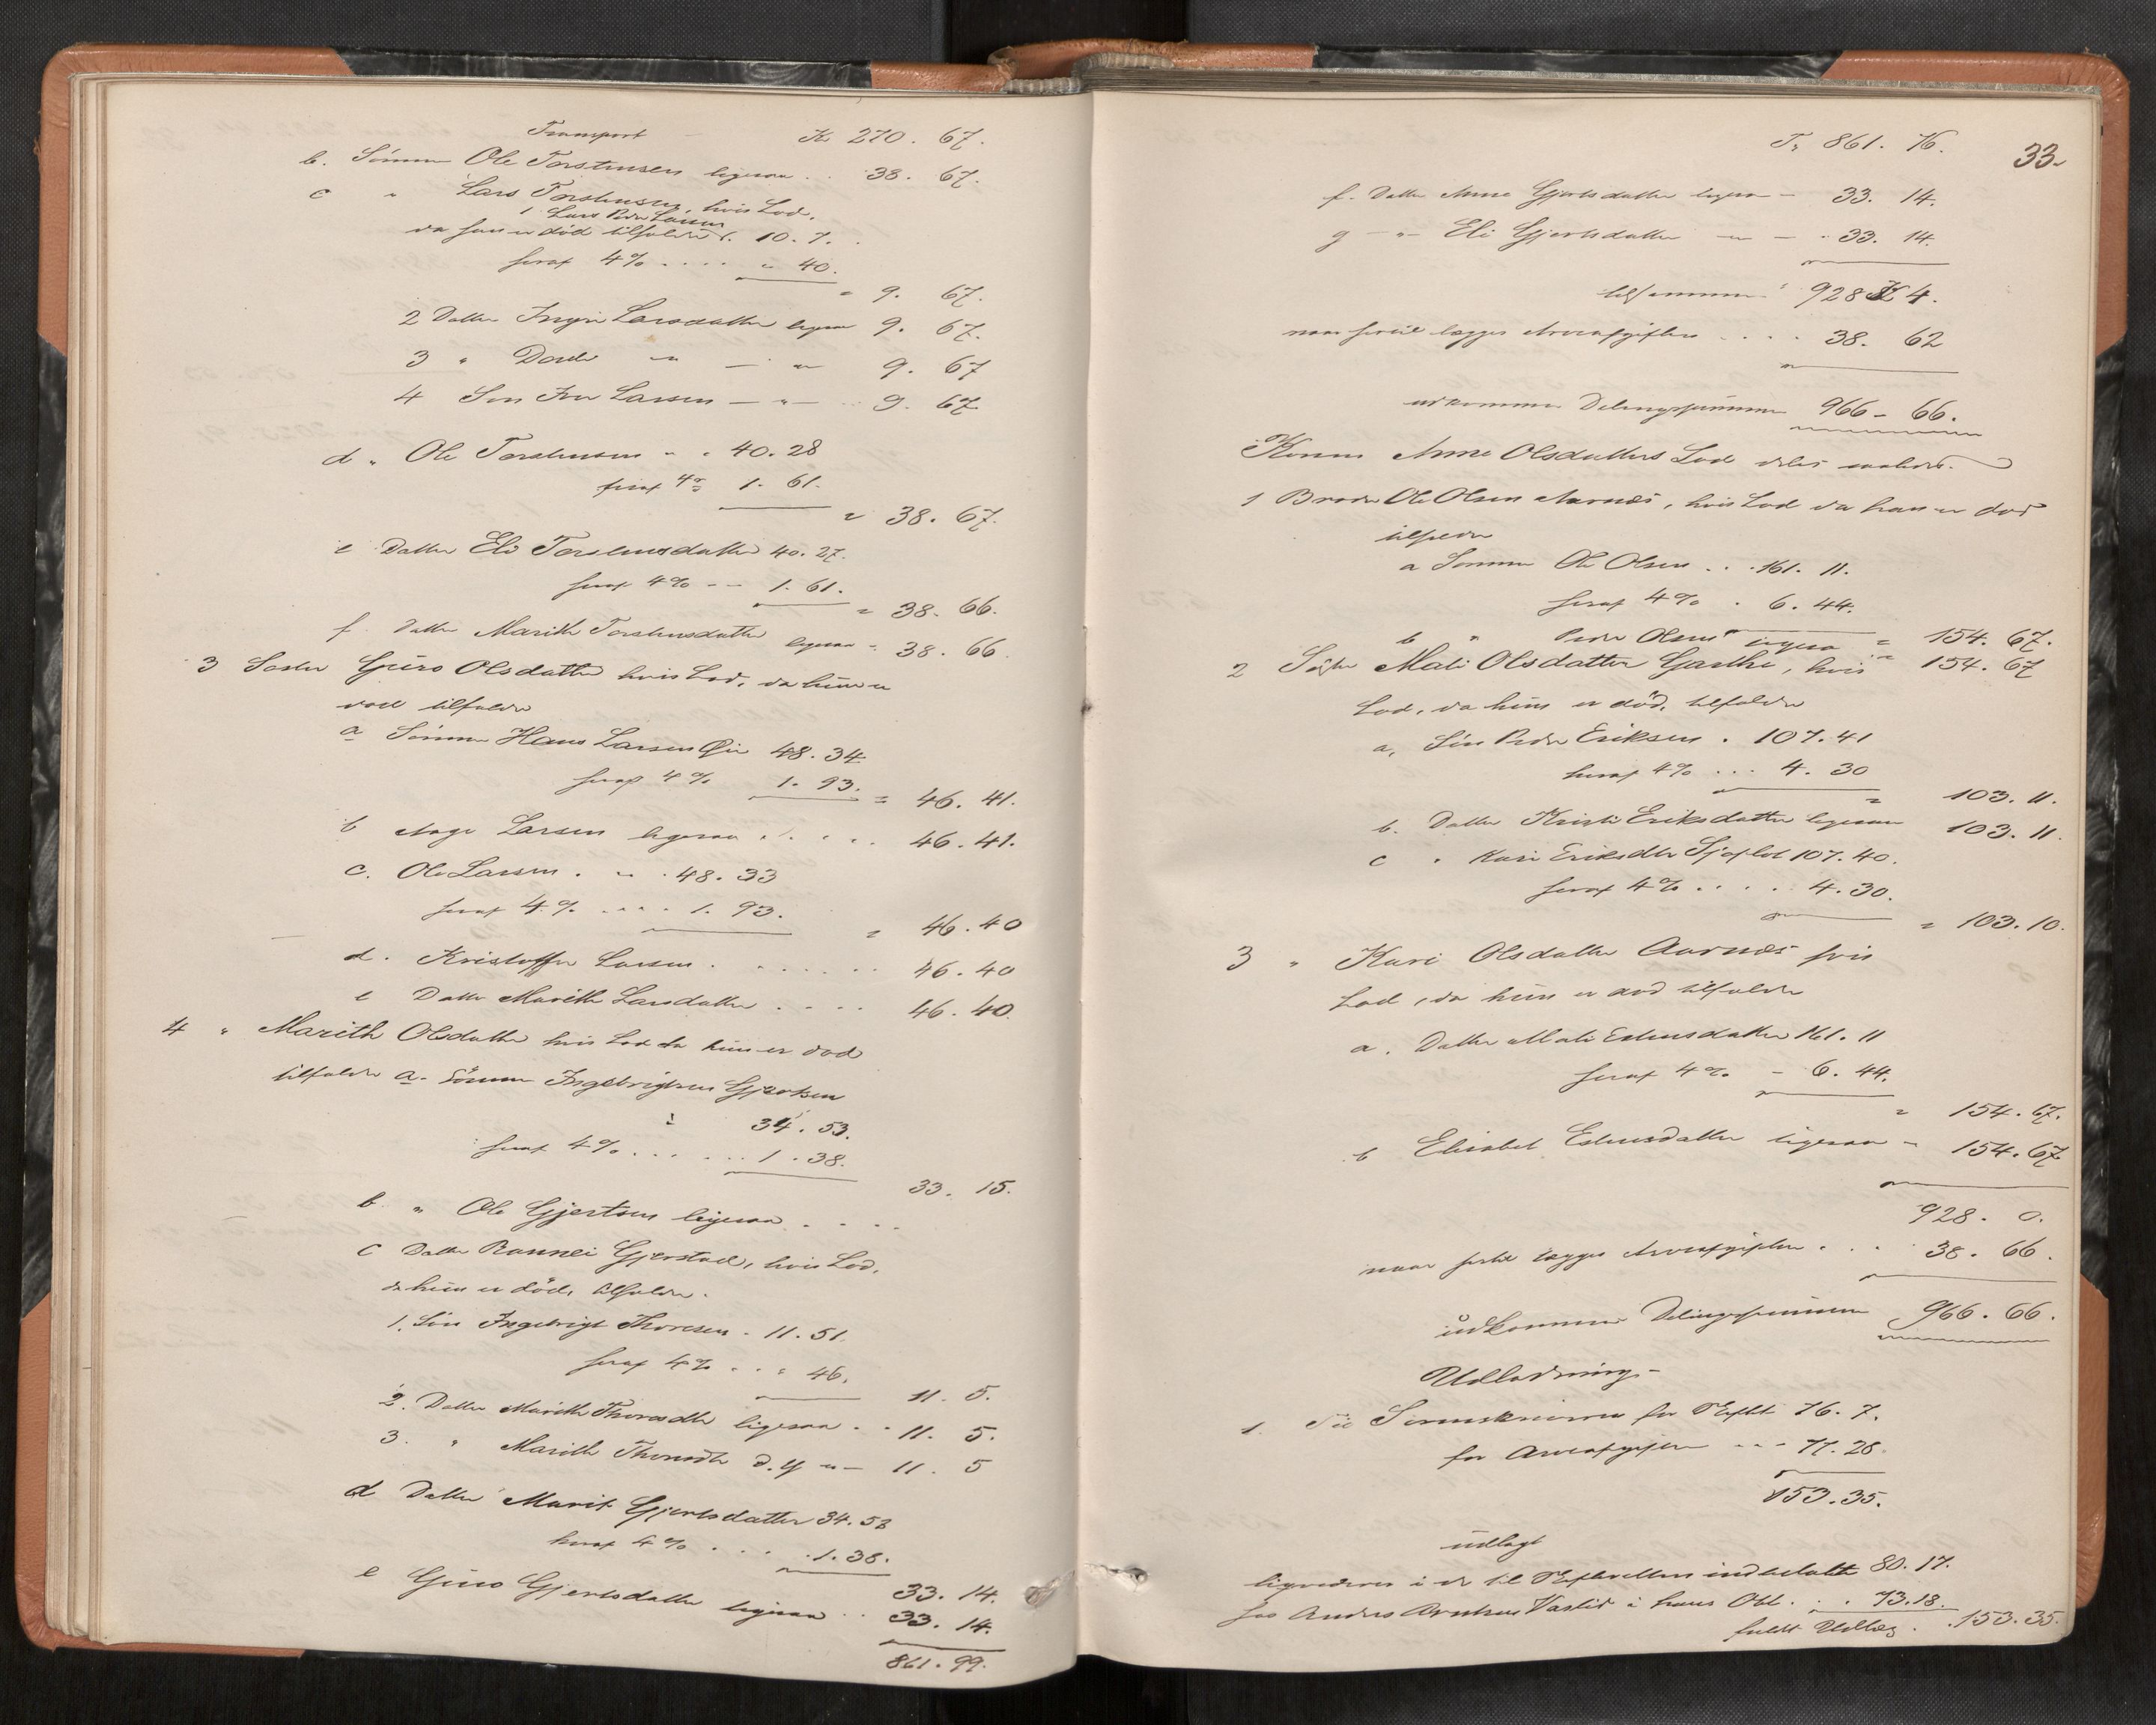 Transport - Kr 270. 67.
b. Sønnen Ole Torstensen ligesaa . . 38. 67.
c " Lars Torstensen, hvis Lod,
1. Lars Peder Larsen
da han er död tilfalder . 10. 7.
heraf 4% . . . . " 40.
= 9. 67.
2 Datter Ingri Larsdatter ligesaa 9. 67.
3 " Dordi " — " 9. 67
4 Søn Iver Larsen — " — 9. 67.
d " Ole Torstensen - . 40. 28
heraf 4% 1. 61.
= 38. 67.
e Datter Eli Torstensdatter 40. 27.
heraf 4% - - 1. 61.
= 38. 66.
f Datter Marith Torstensdatter ligesaa - 38. 66.
3 Søster Guro Olsdatter hvis Lod, da hun er
död tilfalder
a Sönnen Hans Larsen Øie 48. 34
heraf 4% 1. 93. = 46. 41.
b Aage Larsen ligesaa . . . . 46. 41.
c. Ole Larsen . - . 48. 33
heraf 4% . . . . 1. 93.
= 46. 40
d. Kristoffer Larsen . . . . . . . 46. 40
e Datter Marith Larsdatter . . . . 46. 40.
4 " Marith Olsdatter hvis Lod da hun er död
tilfalder a. Sönnen Ingebrigtsen Gjertsen
34. 53.
heraf 4% . . . . . . 1. 38.
33. 15.
b " Ole Gjertsen ligesaa . . . .
c Datter Rannei Gjerstad, hvis Lod,
da hun er död, tilfalder.
1. Sön Ingebrigt Thoresen - 11. 51.
heraf 4% . . . 46.
11. 5.
2. Datter Marith Thoresdtr ligesaa . . 11. 5.
3. " Marith Thoresdtr d. y — " — 11. 5
d Datter Marit Gjertsdatter 34. 53
heraf 4% . . . . 1. 38.
33. 14.
e Guro Gjertsdatter ligesaa . . 33. 14.
861. 99.
33.
Tr 861. 76.
f. Datter Anne Gjertsdatter ligesaa - 33. 14.
g - " - Eli Gjertsdatter — " — . 33. 14.
tilsammen 928 4.
naar hertil lægges Arveafgiften . . . . 38. 62
udkommer Delingssummen 966 - 66.
Konens Anne Olsdatters Lod deles saaledes.
1 Broder Ole Olsen Aarnes, hvis Lod da han er död
tilfalder
a Sønnen Ole Olsen . . . 161. 11.
heraf 4% . 6. 44.
= 154. 67.
b " Peder Olsen ligesaa = 154. 67
2 Søster Mali Olsdatter Garthe, hvis
Lod, da hun er död, tilfalder
a. Sön Peder Eriksen . 107. 41
heraf 4% . . . 4. 30
= 103. 11.
b. Datter Kristi Eriksdatter ligesaa 103. 11.
c " Kari Eriksdtr Sjøflot 107. 40.
heraf 4% . . . . 4. 30.
= 103. 10.
3 " Kari Olsdatter Aarnes hvis
Lod, da hun er död tilfalder
a. Datter Mali Estensdatter 161. 11
heraf 4% - 6. 44.
= 154. 67.
b Elisabet Estensdatter ligesaa - 154. 67
928. 0.
naar hertil lægges Arveafgiften . . . 38. 66.
udkommer Delingssummen 966. 66.
Udlodning -
1. Til Sorenskriveren for 76. 7.
for Arveafgiften - - - 77. 28.
153. 35.
udlagt
i de til indbetalte 80. 17.
hos Anders Arntsen i hans Obl. . . . 73. 18.
fuldt Udlæg . . 153. 35.